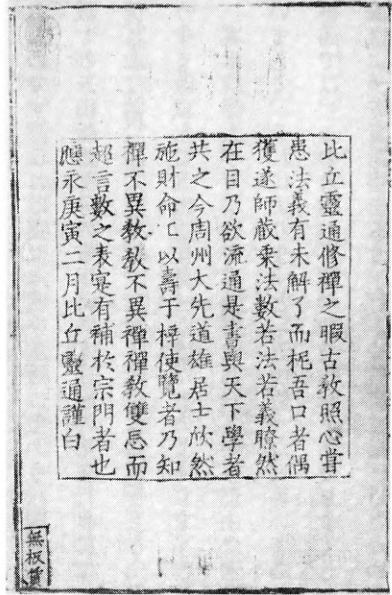 比丘靈通修禪之暇古敎照心甞
患法義有未解了而柅吾口者偶
獲遂師蔵乗法數若法若義瞭然
在目乃欲流通是書與天下學者
共之今周州大先道雄居士欣然
施財命工以壽于梓使覽者乃知
禪不異敎敎不異禪禪敎雙忘而
超言數之表寔有補於宗門者也
應永庚寅二月比丘靈通謹白
無板賃